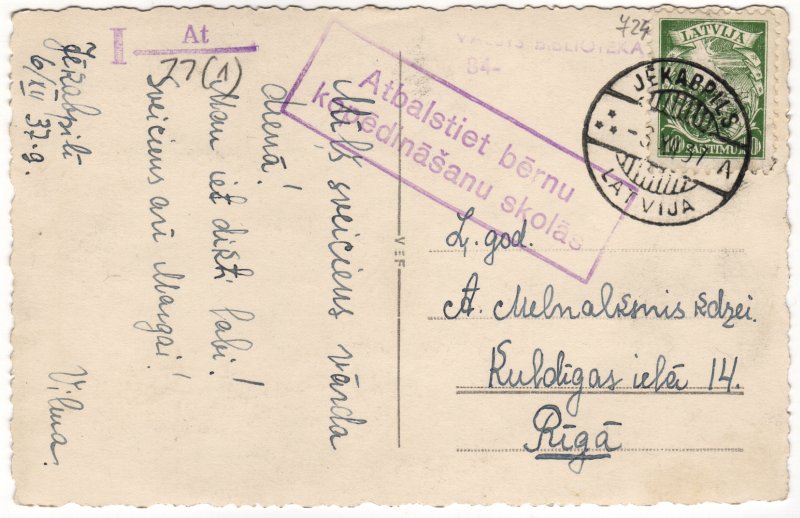 I At
77(1)
Jēkabpilī
6/XII 37.g.
Mīļš sveiciens vārda
dienā!
Man iet dikti labi!
Sveiciens arī Maigai!
Vilma.
724
VALSTS BIBLIOTEKA
84-
Atbalstiet bērnu
kopēdināšanu skolās
LATVIJA
SANTIMU
JĒKABPILS
A
LATVIJA
VEF
Ļ. god.
A. Melnalksnis kdzei.
Kuldīgas ielā 14.
Rīgā